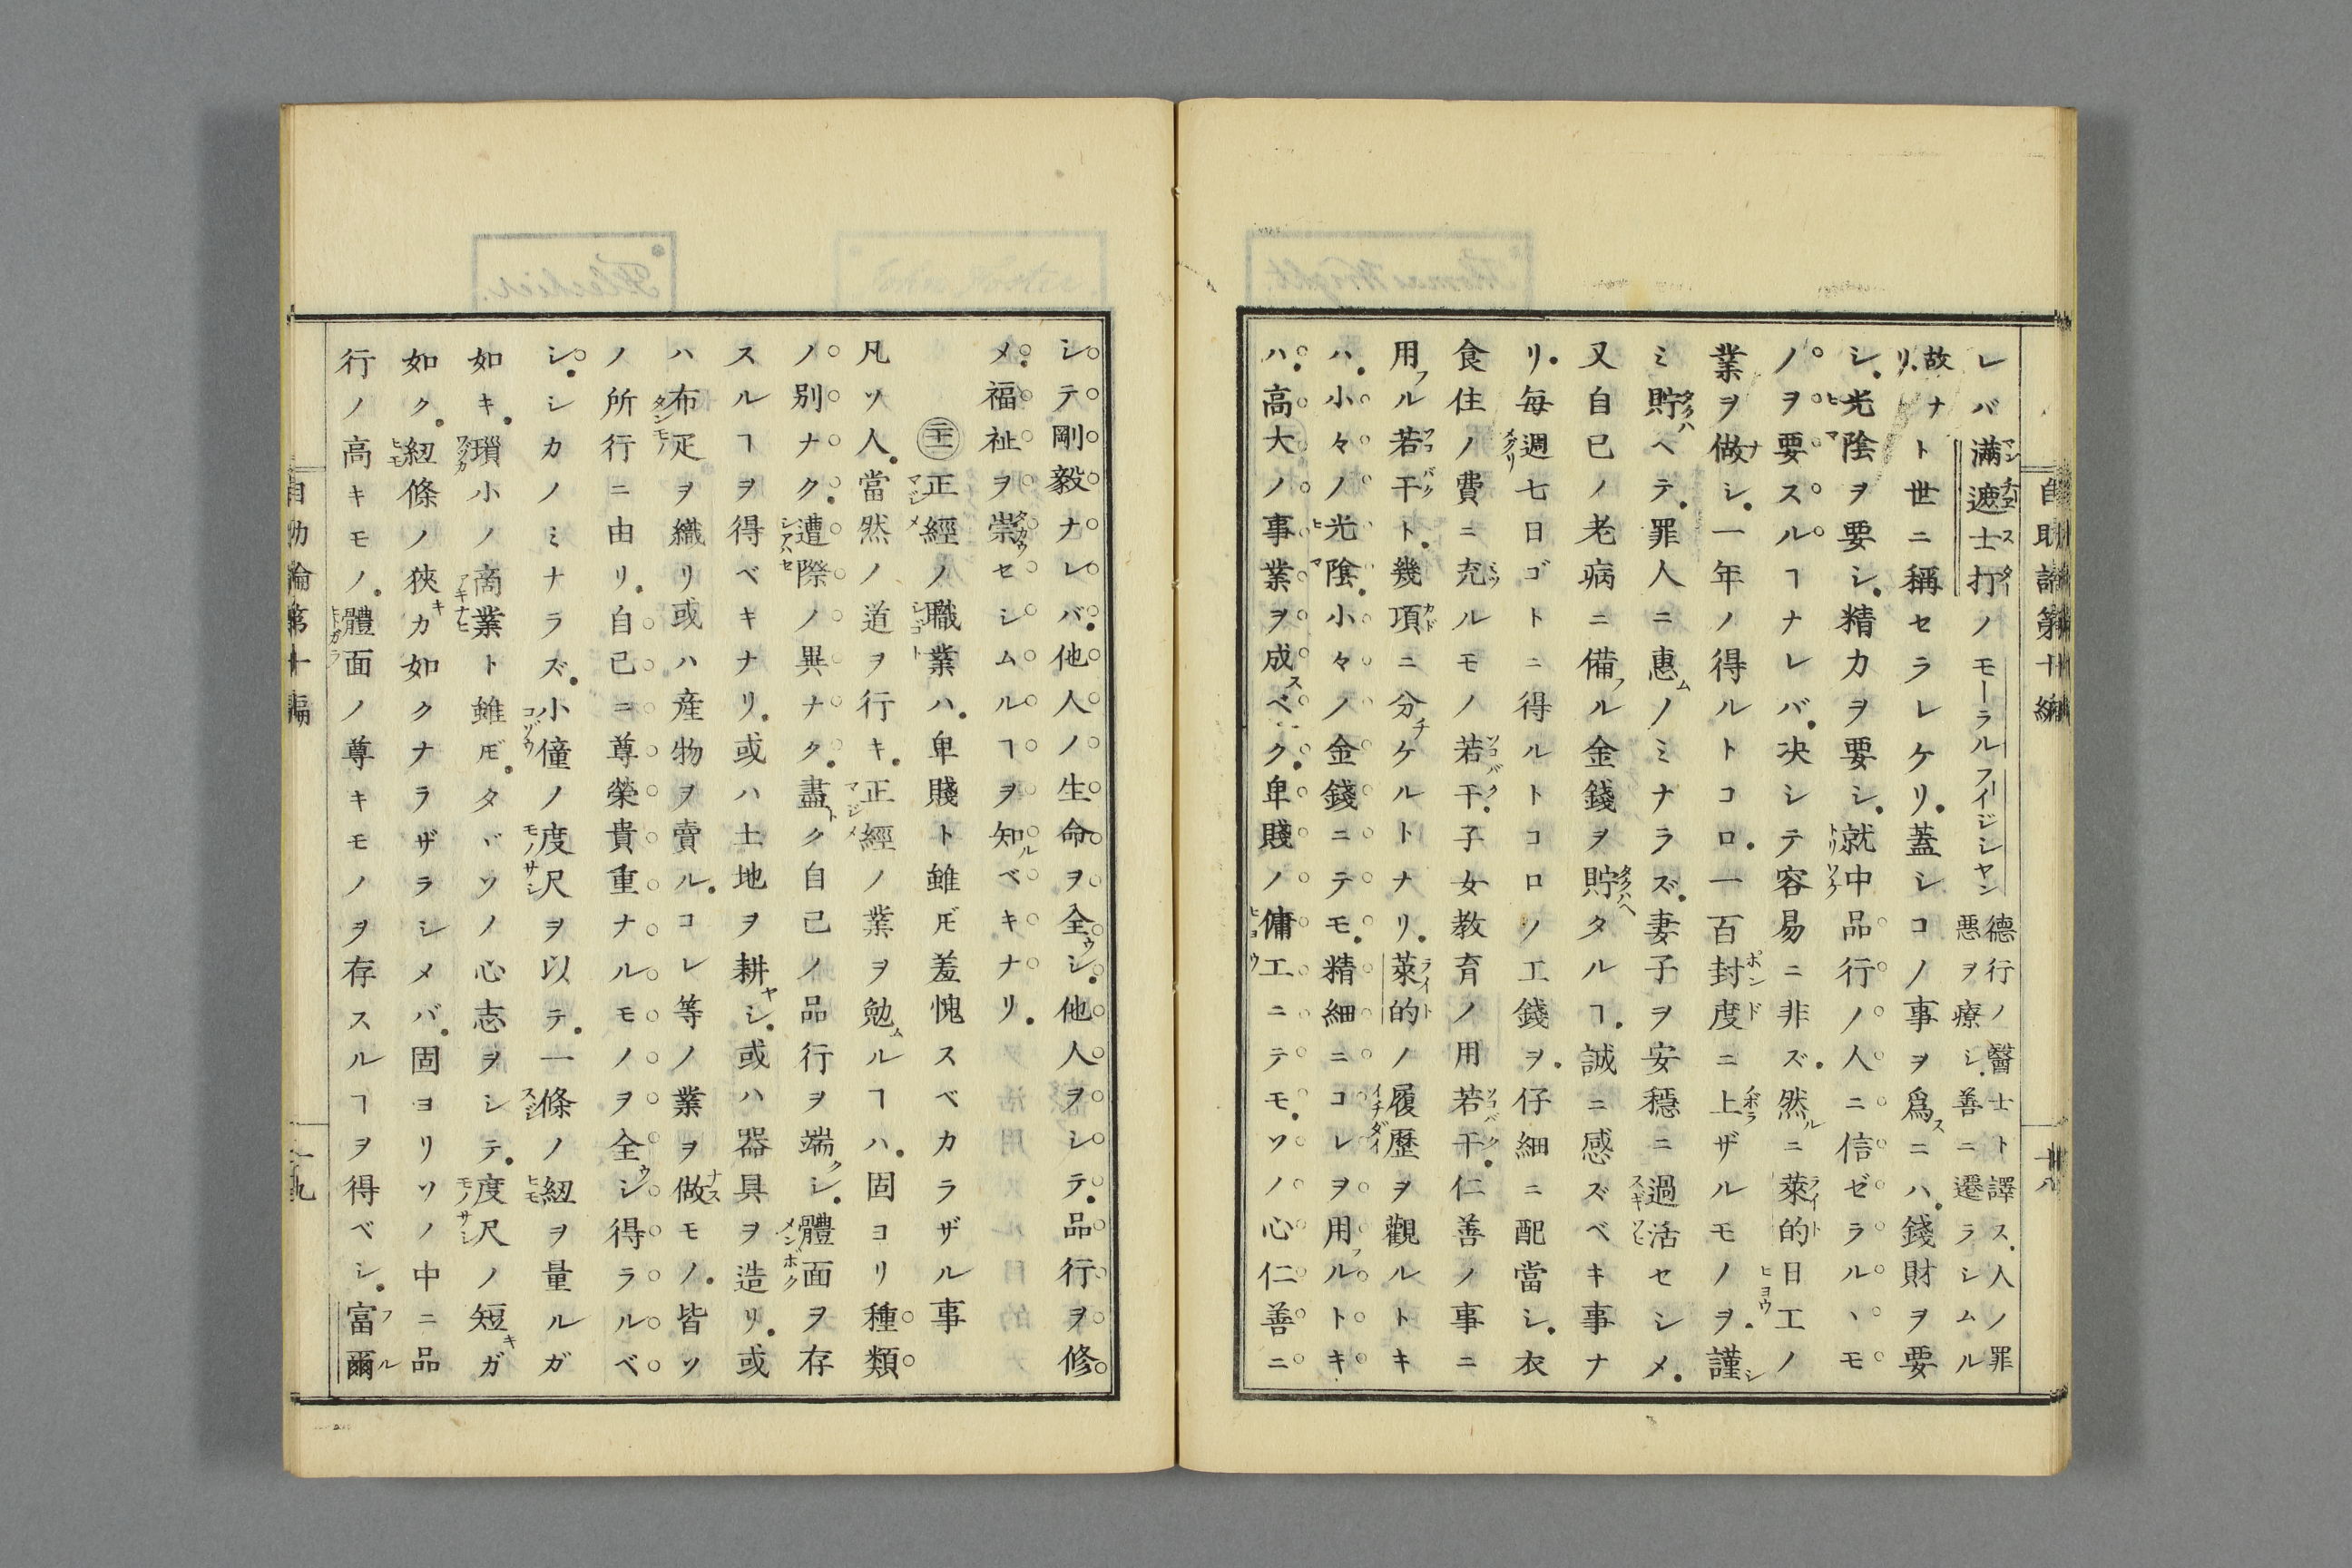 自助論第十編
十八
レバ滿遮士打ノモーラルフイジシヤン德行ノ醫士ト譯ス、人ノ罪惡ヲ療シ、善ニ遷ラシムル
故ナリ、ト世ニ稱セラレケリ。蓋シコノ事ヲ爲ニハ。錢財ヲ要
シ。光陰ヲ要シ。精力ヲ要シ。就中品行ノ人ニ信ゼラルヽモ
ノヲ要スルヿナレバ。决シテ容易ニ非ズ。然ニ萊的日工ノ
業ヲ做シ。一年ノ得ルトコロ。一百封度ニ上ザルモノヲ。謹
ミ貯ヘテ。罪人ニ惠ノミナラズ。妻子ヲ安穩ニ過活セシメ。
又自己ノ老病ニ備ル金錢ヲ貯タルヿ。誠ニ感ズベキ事ナ
リ。每週七日ゴトニ得ルトコロノ工錢ヲ。仔細ニ配當シ。衣
食住ノ費ニ充ルモノ若干。子女教育ノ用若干。仁善ノ事ニ
用ル若干ト。幾項ニ分ケルトナリ。萊的ノ履歷ヲ觀ルトキ
ハ。小々ノ光陰。小々ノ金錢ニテモ。精細ニコレヲ用ルトキ
ハ。高大ノ事業ヲ成ベク。卑賤ノ傭工ニテモ。ソノ心仁善ニ
シテ剛毅ナレバ。他人ノ生命ヲ全シ。他人ヲシテ。品行ヲ修
メ。福祉ヲ崇セシムルヿヲ知ベキナリ。
㊂正經ノ職業ハ。卑賤ト雖𪜈羞愧スベカラザル事
凡ソ人。當然ノ道ヲ行キ。正經ノ業ヲ勉ルヿハ。固コリ種類
ノ別ナク。遭際ノ異ナク。盡ク自己ノ品行ヲ端シ。體面ヲ存
スルヿヲ得ベキナリ。或ハ土地ヲ耕シ。或ハ器具ヲ造リ。或
ハ布疋ヲ織リ或ハ產物ヲ賣ル。コレ等ノ業ヲ做モノ。皆ソ
ノ所行ニ由リ。自己ニ尊榮貴重ナルモノヲ全シ得ラルベ
シ。シカノミナラズ。小僮ノ度尺ヲ以テ。一條ノ紐ヲ量ルガ
如キ。瑣小ノ商業ト雖𪜈。タヾソノ心志ヲシテ。度尺ノ短ガ
如ク。紐條ノ狹カ如クナラザラシメバ。固ヨリソノ中ニ品
行ノ高キモノ。體面ノ尊キモノヲ存スルヿヲ得ベシ。富爾
自助論第十編
十九